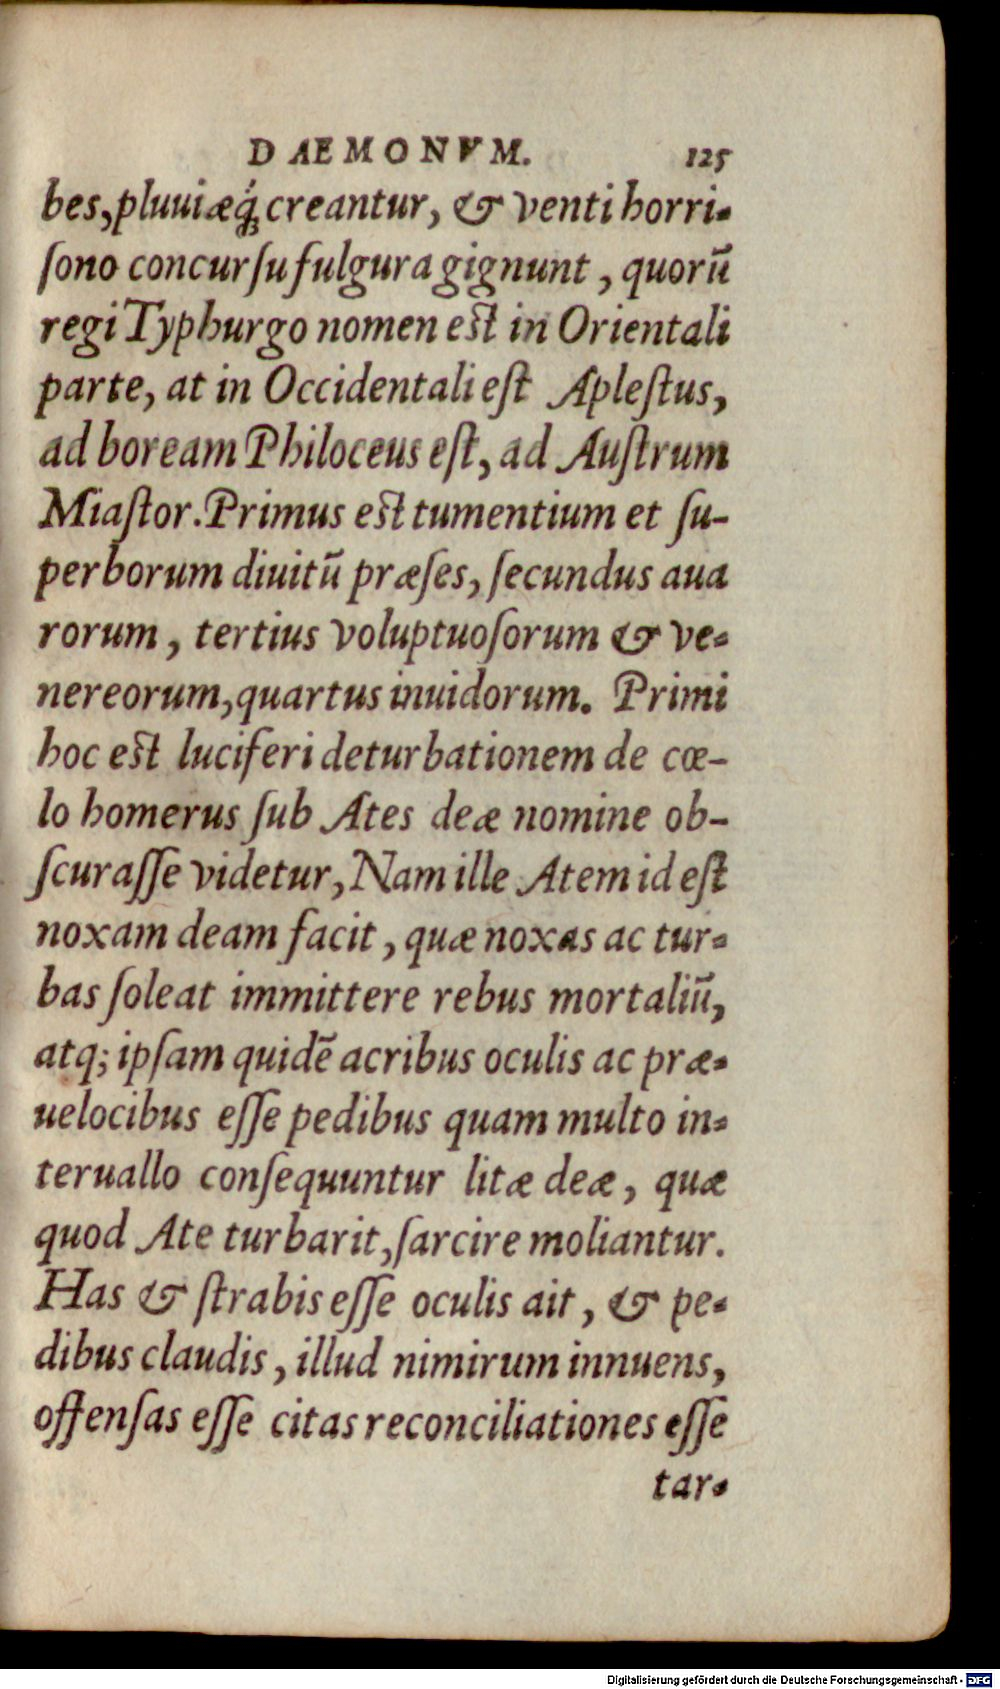 DAEMONVM. 125
bes, pluuiæq́ꝫ creantur, & venti horri-
ſono concurſu fulgura gignunt, quorū
regi Typhurgo nomen eſt in Orientali
parte, at in Occidentali eſt Apleſtus,
ad boream Philoceus eſt, ad Auſtrum
Miaſtor. Primus eſt tumentium et ſu-
perborum diuitū præſes, ſecundus aua
rorum, tertius voluptuoſorum & ve-
nereorum, quartus inuidorum. Primi
hoc eſt luciferi deturbationem de cœ-
lo homerus ſub Ates deæ nomine ob-
ſcuraſſe videtur, Nam ille Atem id eſt
noxam deam facit, quæ noxas ac tur-
bas ſoleat immittere rebus mortaliū,
atq; ipſam quidē acribus oculis ac præ-
uelocibus eſſe pedibus quam multo in-
teruallo conſequuntur litæ deæ, quæ
quod Ate turbarit, ſarcire moliantur.
Has & ſtrabis eſſe oculis ait, & pe-
dibus claudis, illud nimirum innuens,
offenſas eſſe citas reconciliationes eſſe
tar-
Digitalisierung gefördert durch die Deutsche Forschungsgemeinschaft - DFG